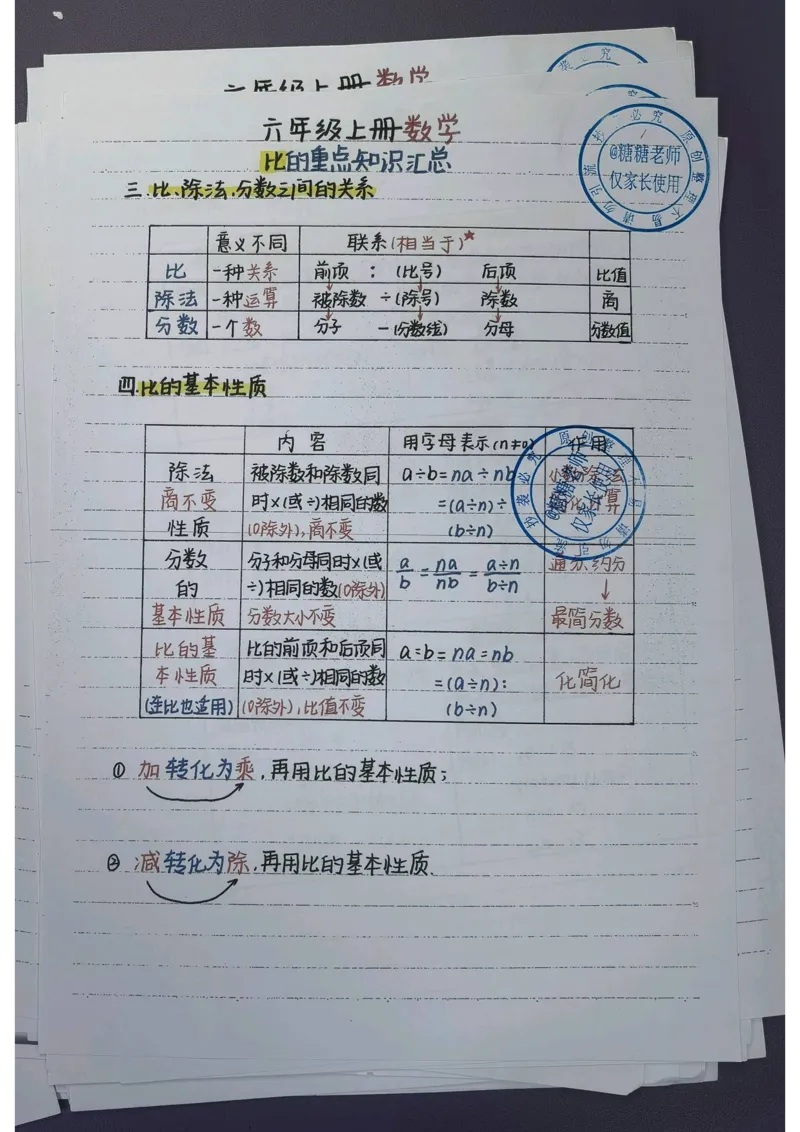 六年级上册数学
六年级上册数学
比的重点知识汇总
三.比、除法、分数之间的关系
意义不同 联系(相当于)*
比 一种关系 前项 : (比号) 后项 比值
除法 一种运算 被除数 ÷(除号) 除数 商
分数 一个数 分子 —(分数线) 分母 分数值
四.比的基本性质
内容 用字母表示(n≠0) 作用
除法 被除数和除数同 a÷b=na÷nb 小数除法
商不变 时×(或÷)相同的数 =(a÷n)÷ 简化运算
性质 (0除外),商不变 (b÷n)
分数 分子和分母同时×(或 a/b=na/nb=a÷n/b÷n 通分、约分
的 ÷)相同的数(0除外) ↓
基本性质 分数大小不变 最简分数
比的基 比的前项和后项同 a:b=na:nb
本性质 时×(或÷)相同的数 =(a÷n): 化简化
(连比也适用) (0除外),比值不变 (b÷n)
① 加转化为乘,再用比的基本性质;
② 减转化为除,再用比的基本性质.
原创整理 不易 请勿引流 抄袭必究
@糖糖老师
仅家长使用
原创整理 不易 请勿引流 抄袭必究
@糖糖老师
仅家长使用